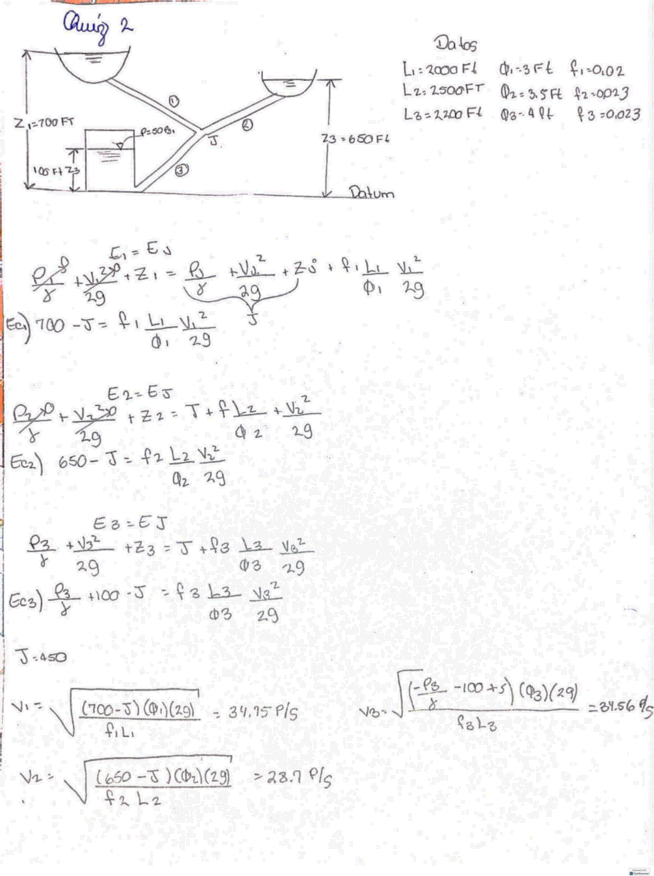 Quiz 2
Datos
L1=2000 Ft Φ1=3 Ft f1=0,02
L2=2500 FT Φ2=3,5 Ft f2=0,023
L3=2200 Ft Φ3=4 ft f3=0,023
Z1=700 FT
①
②
P=50
J
③
Z3=650 Ft
Z3
Datum
E1 = EJ
P1/γ + V1²/2g + Z1 = PJ/γ + VJ²/2g + ZJ + f1 L1/Φ1 V1²/2g
J
Ec1) 700 - J = f1 L1/Φ1 V1²/2g
E2 = EJ
P2/γ + V2²/2g + Z2 = J + f L2/Φ2 + V2²/2g
Ec2) 650 - J = f2 L2/Φ2 V2²/2g
E3 = EJ
P3/γ + V3²/2g + Z3 = J + f3 L3/Φ3 V3²/2g
Ec3) P3/γ + 100 - J = f3 L3/Φ3 V3²/2g
J=450
V1 = √((700-J)(Φ1)(2g)/f1L1) = 34.75 P/S
V3 = √((-P3/γ -100+J)(Φ3)(2g)/f3L3) = 34.56 P/s
V2 = √((650-J)(Φ2)(2g)/f2 L2) = 28.7 P/S